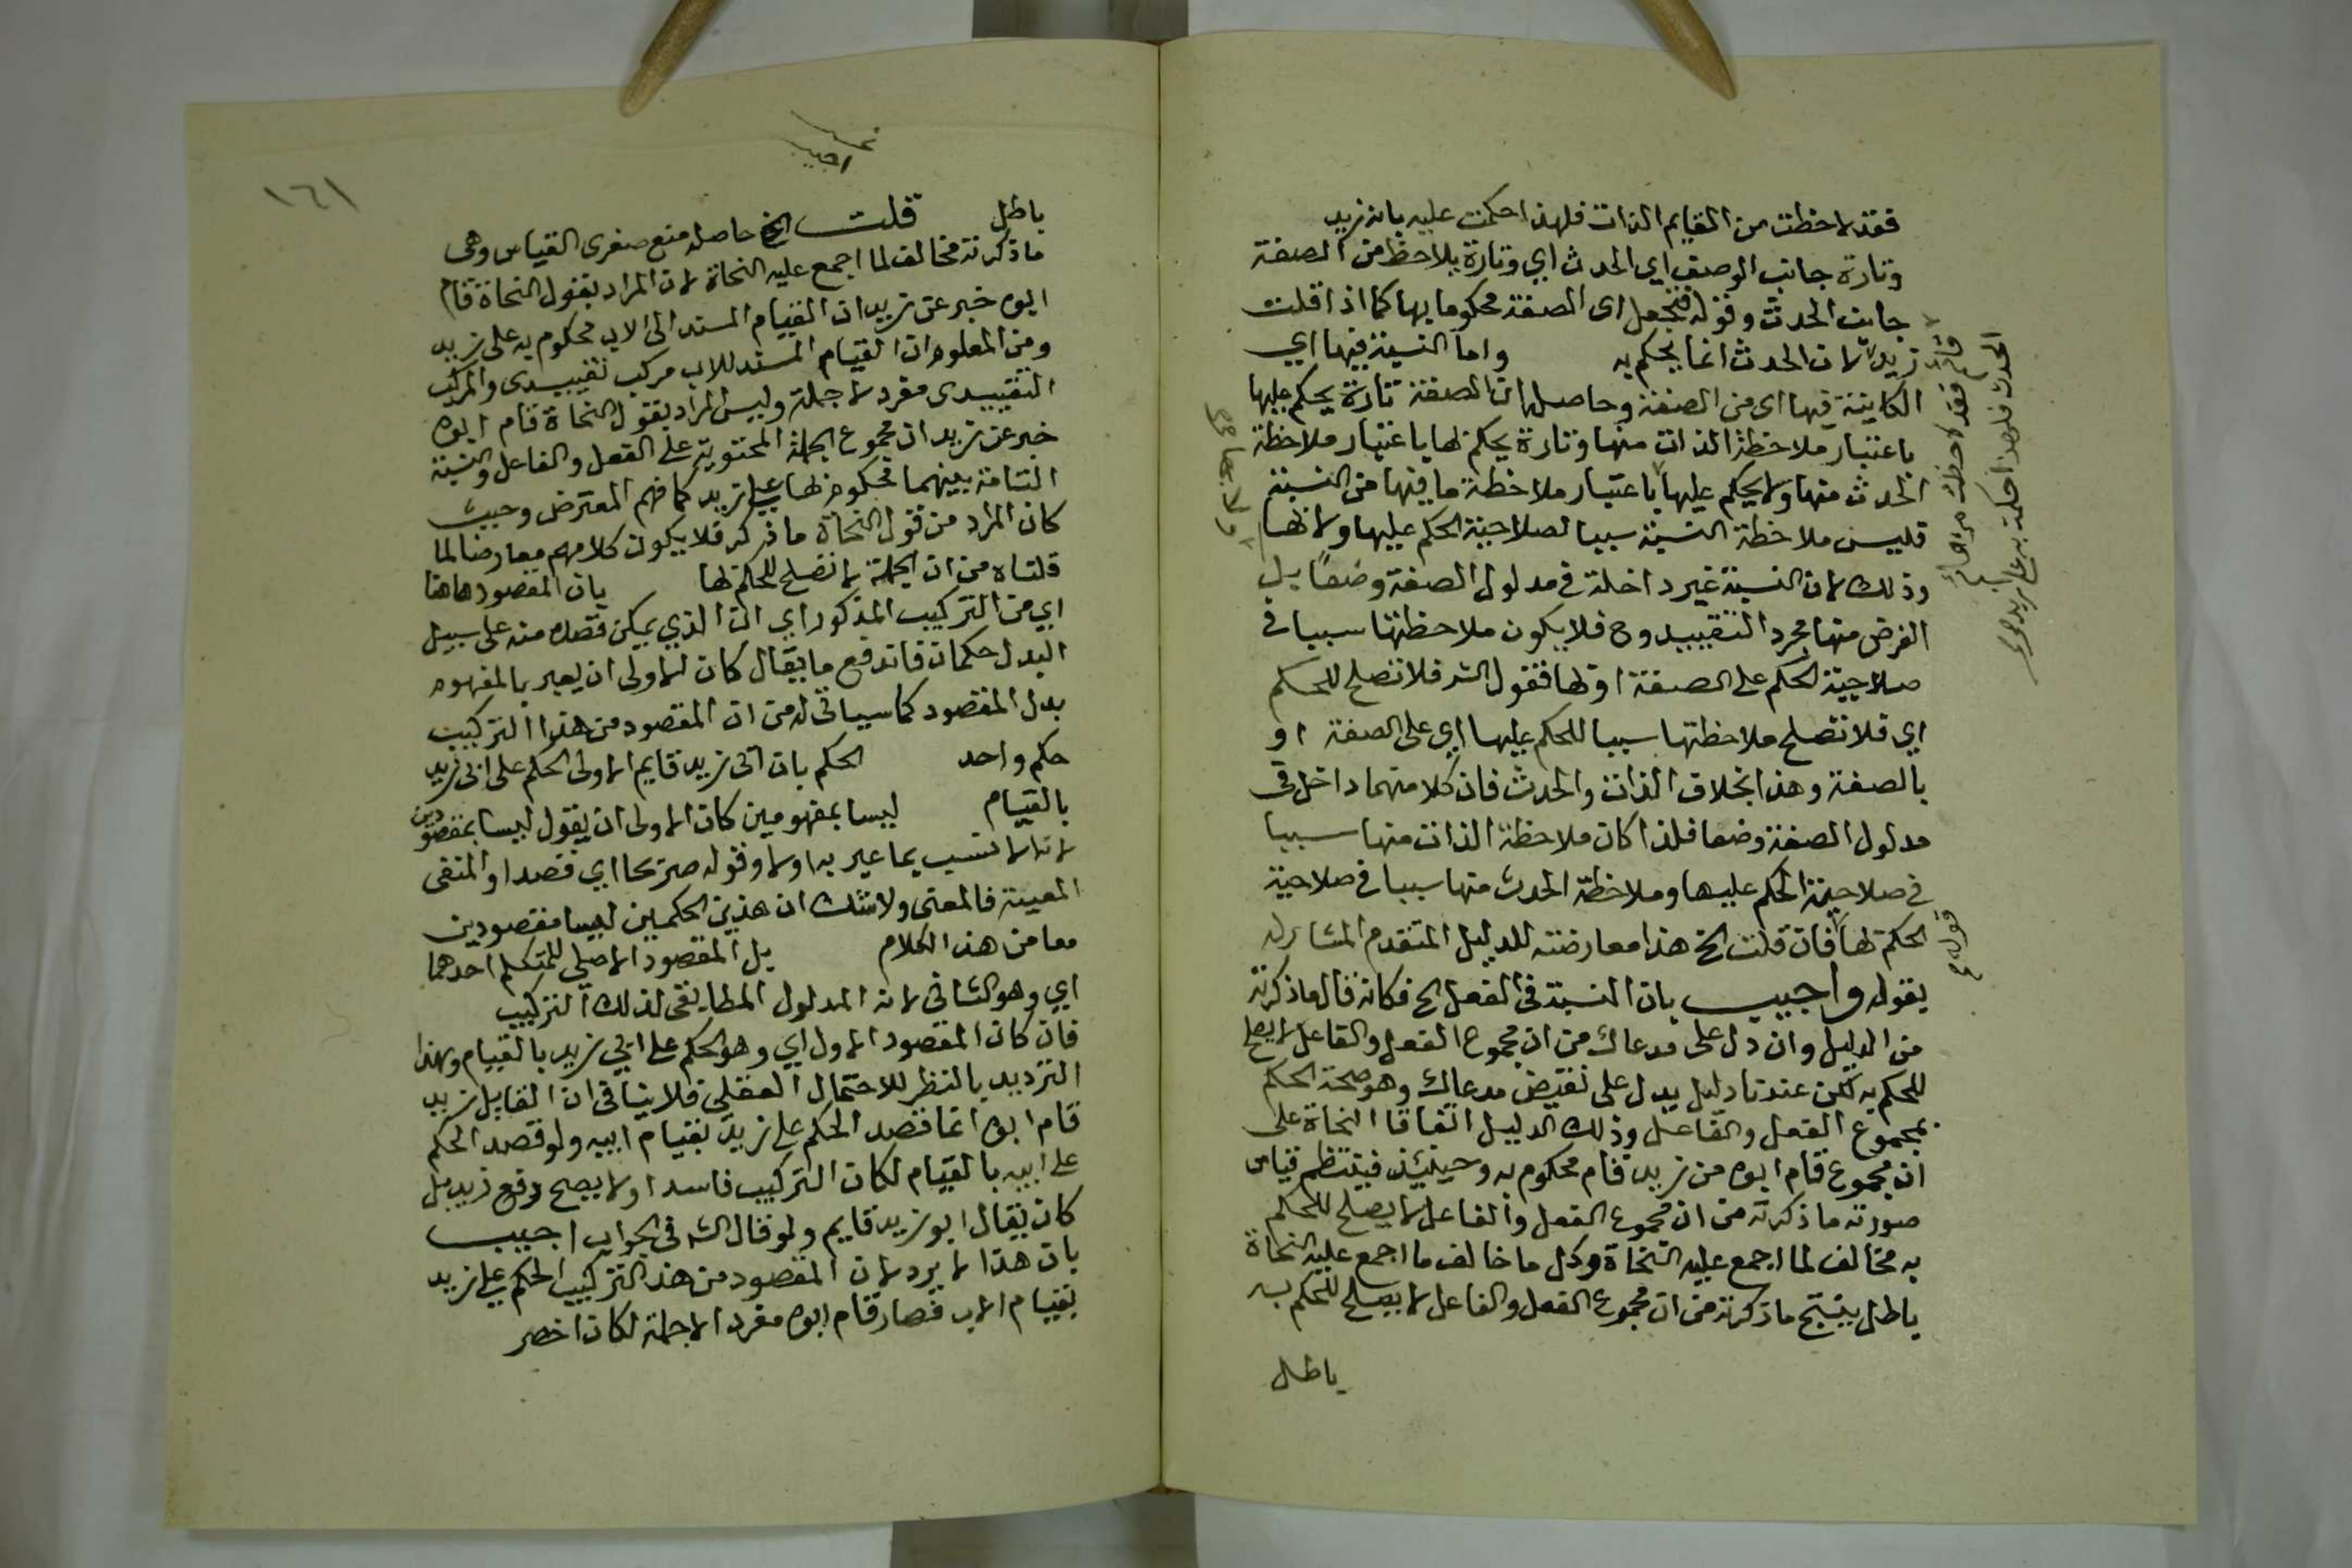 فقد لاحظت من القايم الذات فلهذا حكمت عليه بانه زيد
وتارة جانب الوصف اي الحدث اي وتارة يلاحظ من الصفة
جانب الحدث وقوله فتجعل اى الصفة محكوما بها كما اذا قلت
زيد لان الحدث انما يحكم به واما النسبة فيها اي
الكاينة فيها اى من الصفة وحاصله ان الصفة تارة يحكم عليها
باعتبار ملاحظة الذات منها وتارة يحكم بها باعتبار ملاحظة
الحدث منها ولا يحكم عليها باعتبار ملاحظة ما فيها من النسبة
فليس ملاحظة النسبة سببا لصلاحية الحكم عليها ولا بها
وذلك لان النسبة غير داخلة في مدلول الصفة وضعا بل
الغرض منها مجرد التقييد وح فلا يكون ملاحظتها سببا فى
صلاحية الحكم على الصفة او بها فقول الشر فلا تصلح للحكم
اي فلا تصلح ملاحظتها سببا للحكم عليها اي على الصفة او
بالصفة وهذا بخلاف الذات والحدث فان كلا منهما داخل فى
مدلول الصفة وضعا فلذا كان ملاحظة الذات منها سببا
في صلاحية الحكم عليها وملاحظة الحدث منها سببا في صلاحية
الحكم بها فان قلت الخ هذا معارضته للدليل المتقدم المشار له
بقوله واجيب بان النسبة فى الفعل الخ فكانه قال ما ذكرته
من الدليل وان دل على مدعاك من ان مجموع الفعل والفاعل لا يصلح
للحكم به لكن عندنا دليل يدل على نقيض مدعاك وهو صحة الحكم
بمجموع الفعل والفاعل وذلك الدليل اتفاقا النحاة على
ان مجموع قام ابوه من زيد قام محكوم به وحينيذ فينتظم قياس
صورته ما ذكرته من ان مجموع الفعل والفاعل لا يصلح للحكم
به مخالف لما اجمع عليه النحاة وكل ما خالف ما اجمع عليه النحاة
باطل ينتج ما ذكرته من ان مجموع الفعل والفاعل لا يصلح للحكم به
باطل
ولا بها صح
قايم فقد لاحظت من القايم
الحدث فلهذا حكمت به على زيد صح
قوله
١٦١
اجيب
باطل قلت الخ حاصله منع صغرى القياس وهى
ما ذكرته مخالف لما اجمع عليه النحاة لان المراد بقول النحاة قام
ابوه خبر عن زيد ان القيام المسند الى الاب محكوم به على زيد
ومن المعلوم ان القيام المسند للاب مركب تقييدى والمركب
التقييدى مفرد لا جملة وليس المراد بقول النحاة قام ابوه
خبر عن زيد ان مجموع الجملة المحتوية على الفعل والفاعل والنسبة
التامة بينهما محكوم بها على زيد كما فهم المعترض وحيث
كان المراد من قول النحاة ما ذكر فلا يكون كلامهم معارضا لما
قلناه من ان الجملة لا تصلح للحكم بها بان المقصود هاهنا
اي من التركيب المذكور اي ان الذي يمكن قصده منه على سبيل
البدل حكمان فاندفع ما يقال كان الاولى ان يعبر بالمفهوم
بدل المقصود كما سياتى له من ان المقصود من هذا التركيب
حكم واحد الحكم بان ابى زيد قايم الاولى الحكم على ابى زيد
بالقيام ليسا بمفهومين كان الاولى ان يقول ليسا بمقصودين
لانه الانسب بما عبر به اولا وقوله صريحا اي قصدا والمنفى
المعية فالمعنى ولا شك ان هذين الحكمين ليسا مقصودين
معا من هذا الكلام بل المقصود الاصلي للمتكلم احدهما
اي وهو الثانى لانه المدلول المطابقى لذلك التركيب
فان كان المقصود الاول اي وهو الحكم على ابي زيد بالقيام وهذا
الترديد بالنظر للاحتمال العقلي فلا ينافى ان القايل زيد
قام ابوه انما قصد الحكم على زيد بقيام ابيه ولو قصد الحكم
على ابيه بالقيام لكان التركيب فاسدا ولا يصح رفع زيد بل
كان يقال ابو زيد قايم ولو قال الشر فى الجواب اجيب
بان هذا لا يرد لان المقصود من هذا التركيب الحكم على زيد
بقيام الاب فصار قام ابوه مفردا لا جملة لكان اخصر